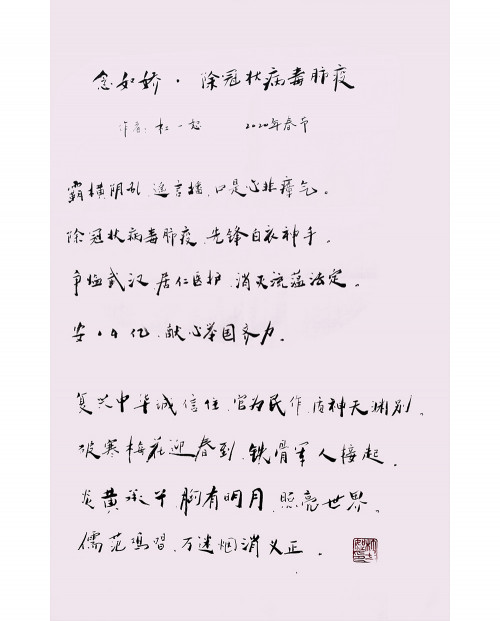 念奴娇·除冠状病毒肺疫
作者：杜一起 2020年春节
霸横阴乱，遥言播，口是心非瘴气。
除冠状病毒肺疫，先锋白衣神手。
争临武汉，居仁医护，消灭流蔼法定。
安·4亿，献心举国齐力。
复兴中华诚信住，官为民作，质神天渊别。
破寒梅花迎春到，铁骨军人接起。
炎黄承千胸有明月，照亮世界。
儒范冯習，万迷烟消义正。